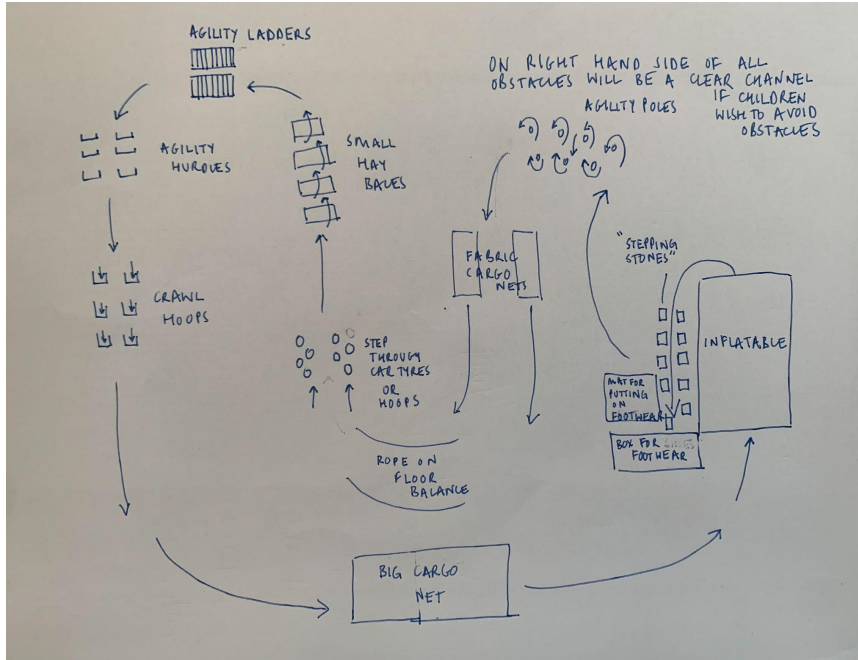 AGILITY LADDERS
ON RIGHT HAND SIDE OF ALL
OBSTACLES WILL BE A CLEAR CHANNEL
IF CHILDREN
WISH TO AVOID
OBSTACLES
AGILITY POLES
AGILITY
HURDLES
SMALL
HAY
BALES
"STEPPING
STONES"
FABRIC
CARGO
NETS
CRAWL
HOOPS
INFLATABLE
STEP
THROUGH
CAR TYRES
OR
HOOPS
MAT FOR
PUTTING
ON
FOOTWEAR
BOX FOR
FOOTWEAR
ROPE ON
FLOOR
BALANCE
BIG CARGO
NET